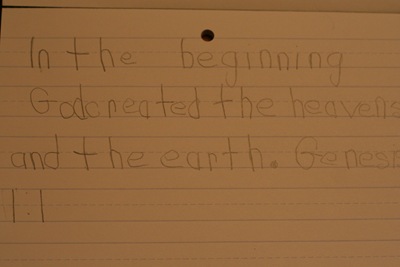 In the beginning
God created the heavens
and the earth. Genesis
1:1